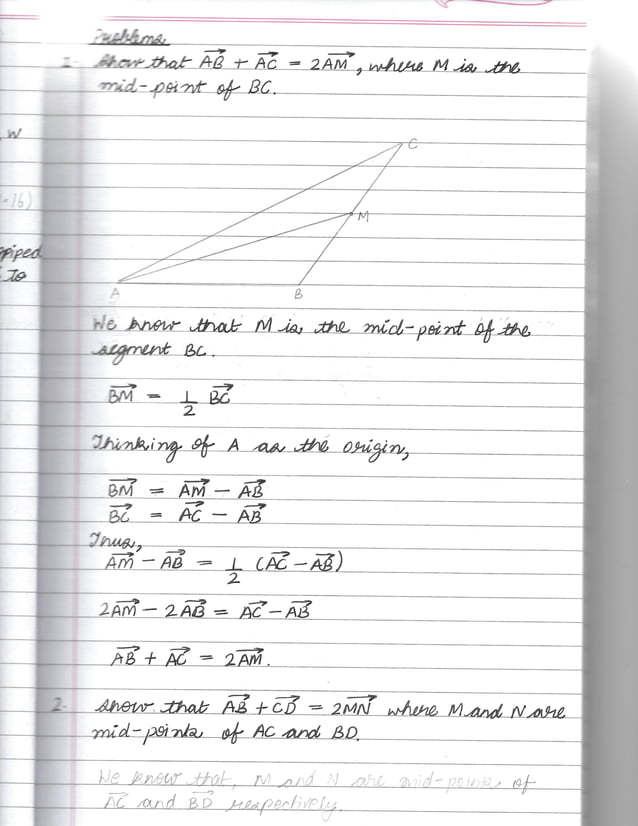 Problems
1- Show that AB⃗ + AC⃗ = 2AM⃗, where M is the
mid-point of BC.
w
-16)
piped
To
C
M
A
B
We know that M is the mid-point of the
segment BC.
BM⃗ = 1/2 BC⃗
Thinking of A as the origin,
BM⃗ = AM⃗ - AB⃗
BC⃗ = AC⃗ - AB⃗
Thus,
AM⃗ - AB⃗ = 1/2 (AC⃗ - AB⃗)
2AM⃗ - 2AB⃗ = AC⃗ - AB⃗
AB⃗ + AC⃗ = 2AM⃗.
2- Show that AB⃗ + CD⃗ = 2MN⃗ where M and N are
mid-points of AC and BD.
We know that, M and N are mid-points of
AC⃗ and BD⃗ respectively.